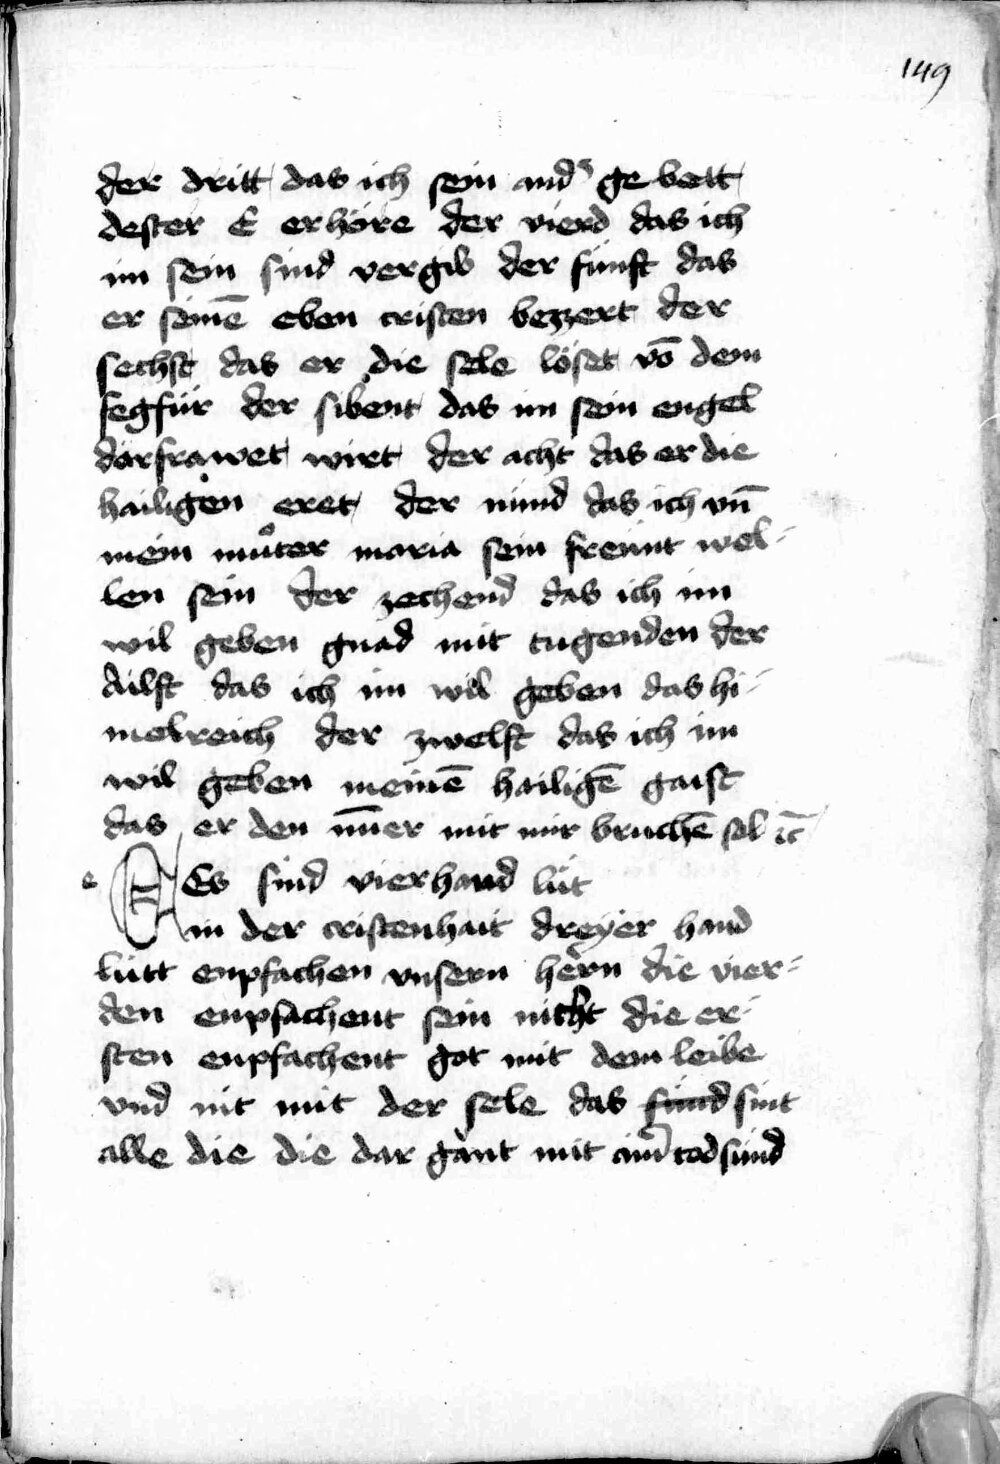 149
der dritt das ich sein and⁹ ge bett
dester E erhöre der vierd das ich
im sein sind vergib der fünft das
er seinē eben cristen bezzert der
sechst das er die sele löset vō dem
fegfür der sibent das im sein engel
dar frawet wirt der acht das er die
hailigen eret der nünd das ich vn̄
mein můter maria sein freünt wel-
len sein der zechend das ich im
wil geben gnad mit tugenden der
ailft das ich im wil geben das hi-
melreich der zwelft das ich im
wil geben meinē hailigē gaist
das er den im̄er mit mir bruchē sol ꝛc̄
e Es sind vierhand lüt
in der cristenhait dreyer hand
lütt enpfachen vnsern hern die vier-
den enpfachent sein nicht die er-
sten enpfachent got mit dem leibe
vnd nit mit der sele das sünd sint
alle die die dar gant mit aim̄ tod sünd